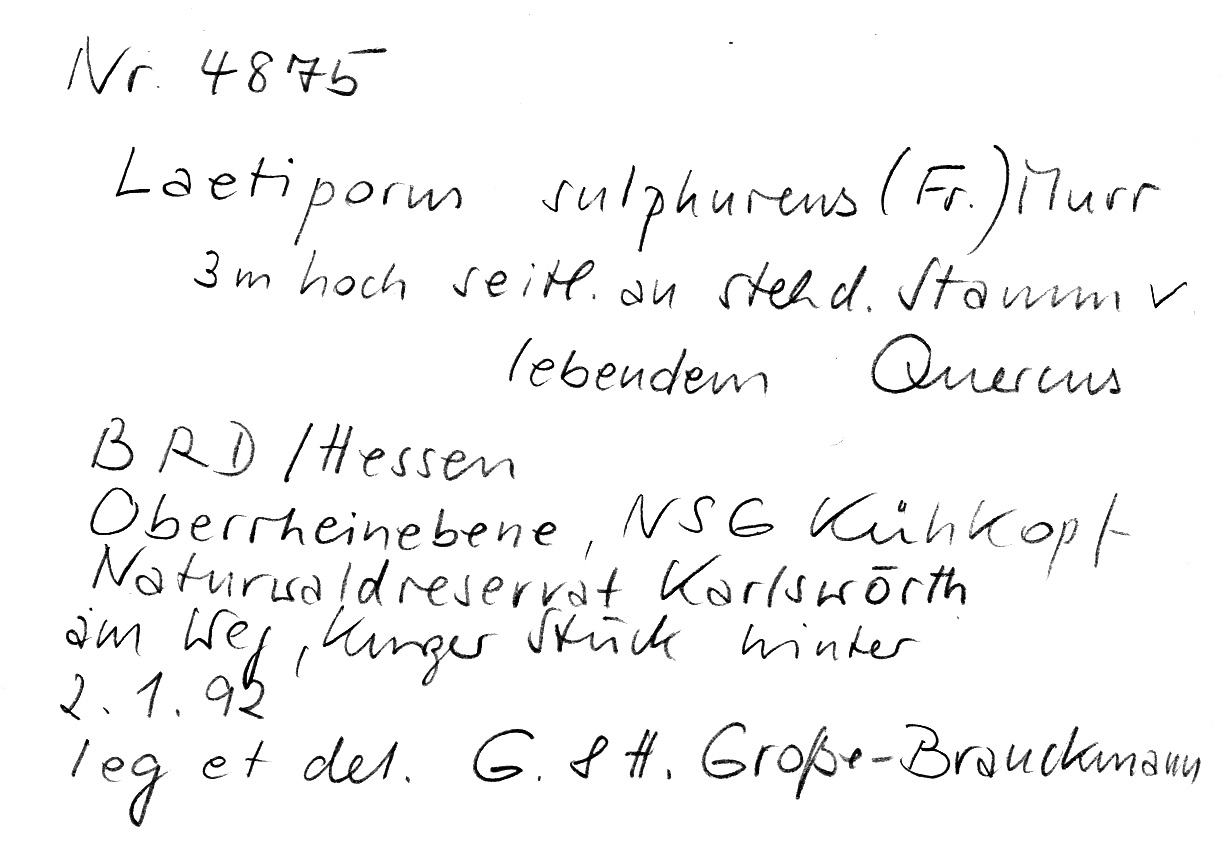 Nr. 4875
Laetiporus sulphureus (Fr.) Murr
3 m hoch seitl. an stehd. Stamm v.
lebendem Quercus
BRD / Hessen
Oberrheinebene, NSG Kühkopf
Naturwaldreservat Karlswörth
am Weg, kurzes Stück hinter
2.1.92
leg et det. G. & H. Große-Brauckmann